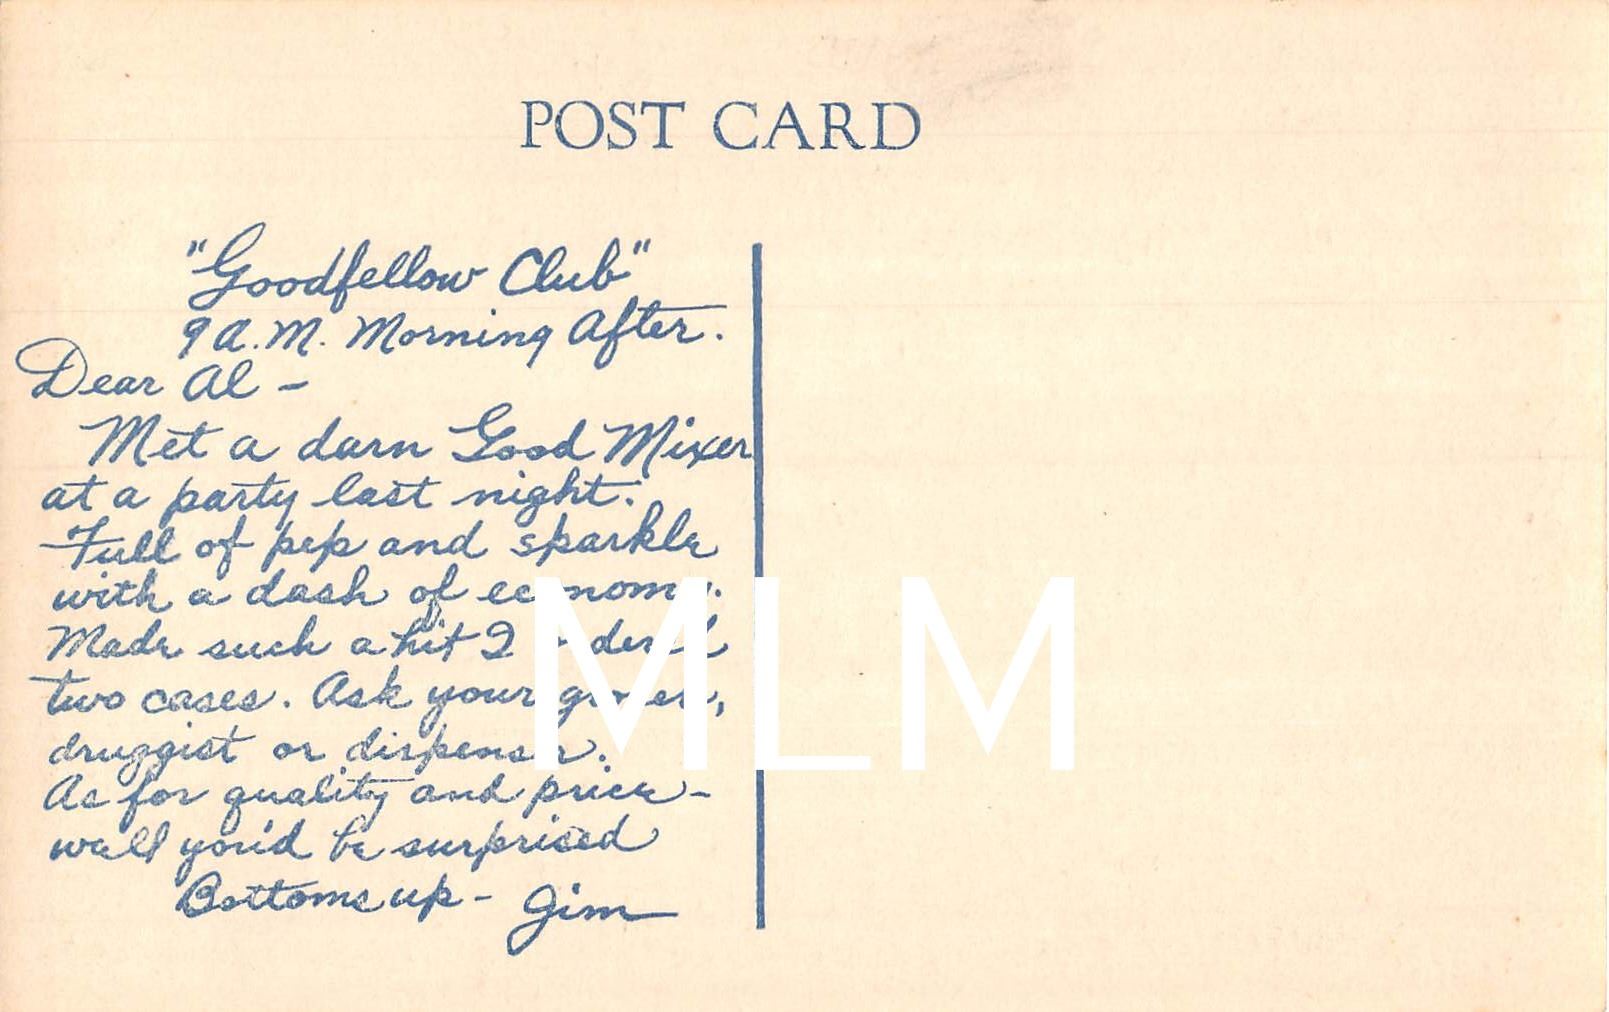 POST CARD
"Goodfellow Club"
9 A.M. Morning After.
Dear Al -
Met a darn Good Mixer
at a party last night.
Full of pep and sparkle
with a dash of economy.
Made such a hit I ordered
two cases. Ask your grocer,
druggist or dispenser.
As for quality and price -
well you'd be surprised
Bottoms up - Jim
MLM